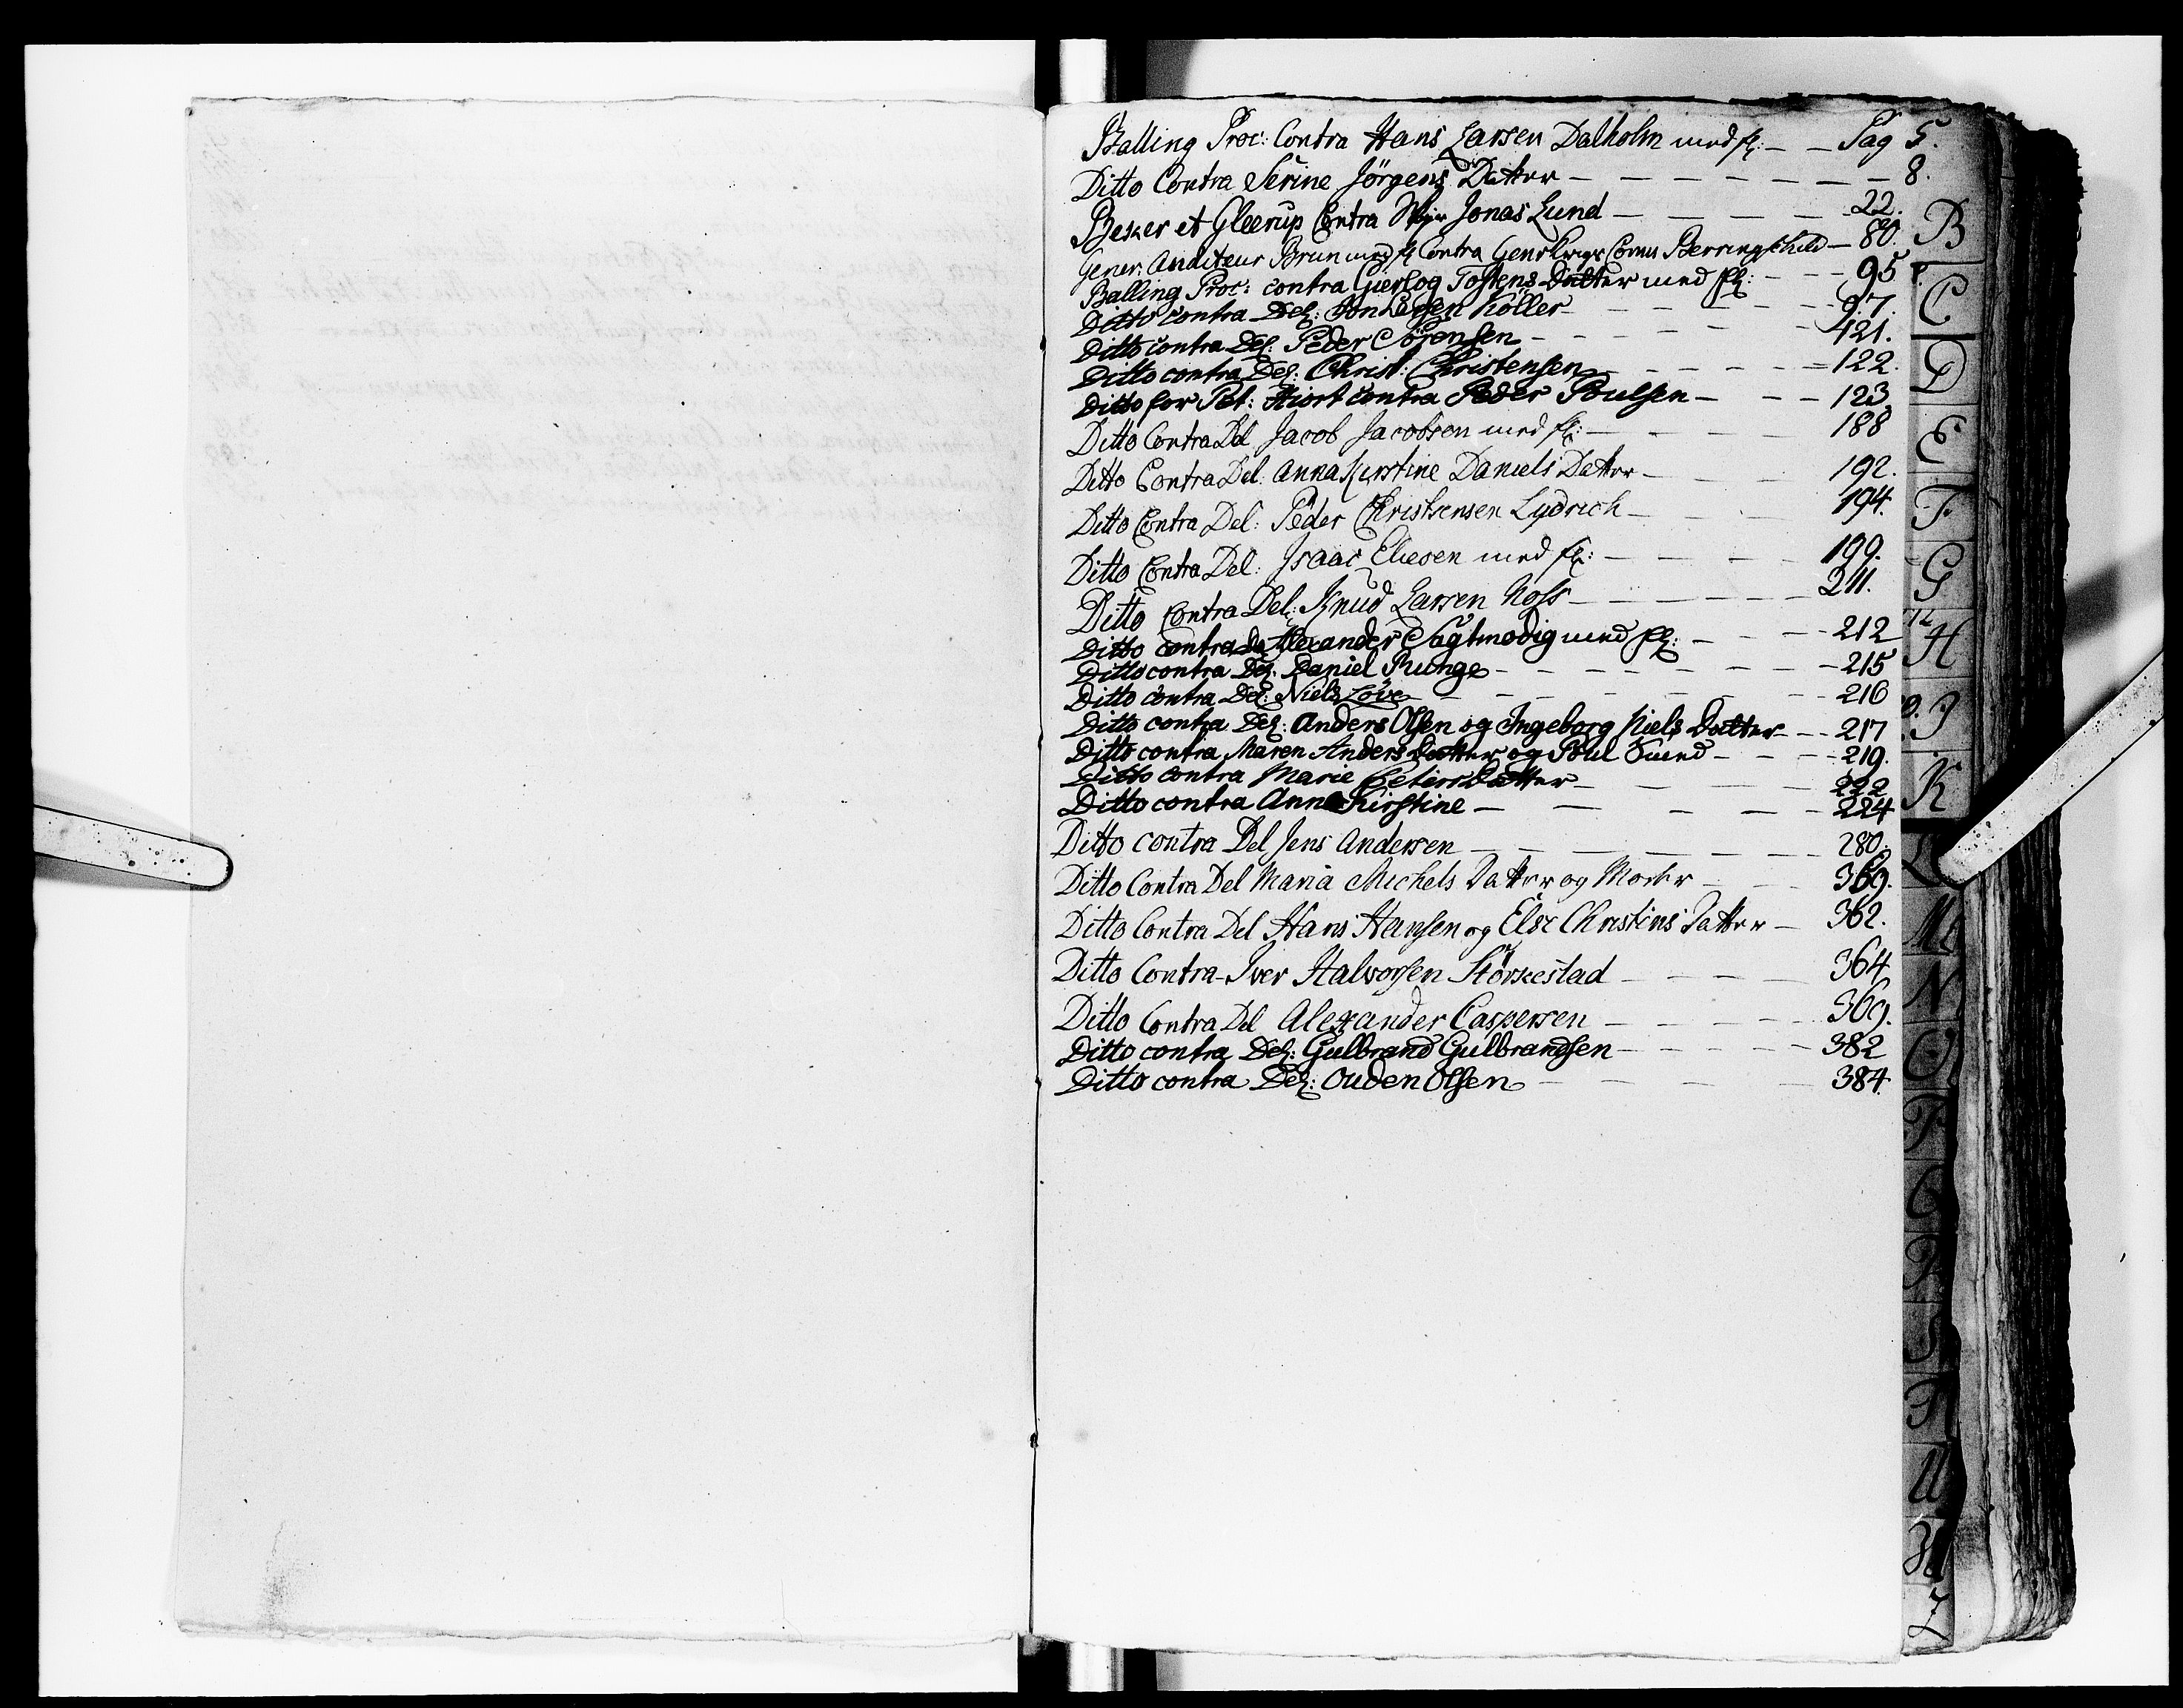 Balling Proc: Contra Hans Larsen Dalholm med fl: — — Pag 5.
Ditto Contra Serine Jörgens Datter — — — — — — — 8.
Beker et Gleerup Contra Jonas Lund — — — — 22.
Gener: Auditeur Brun med fl Contra — 80.
Balling Proc: contra Gierlog Tostens Datter med fl: — — — 95.
Ditto contra Del: Köller — — — — — 97.
Ditto contra Del: Peder Sörensen — — — — — 121.
Ditto contra Del: Christ: Christensen — — — — — 122.
Ditto for Pet: Hiort contra Peder Poulsen — — — 123
Ditto Contra Del Jacob Jacobsen med fl: — — — 188
Ditto Contra Del: Anna Kirstine Daniels Datter — — — 192.
Ditto Contra Del: Peder Christensen Lydrich — — — 194.
Ditto Contra Del: Isaac Eliesen med fl: — — — — 199.
Ditto Contra Del: Knud Larsen Noss — — — — — 211.
Ditto contra De Alexander Sagtmodig med fl: — — — 212
Ditto contra Del: Daniel Runge — — — — — — — 215
Ditto contra Del: Niels Löve — — — — — — — 216
Ditto contra Del: Anders Olsen og Ingeborg Niels Datter — — 217
Ditto contra Maren Anders Datter og Poul Smed — — — 219.
Ditto contra Marie Peters Datter — — — — 222
Ditto contra Anna Kirstine — — — — — 224
Ditto contra Del Jens Andersen — — — — — — 280.
Ditto Contra Del Maria Michels Datter og Moder — — — 360.
Ditto Contra Del Hans Hansen og Else Christins Datter — 362.
Ditto Contra Iver Halvorsen Störkestad — — — 364
Ditto Contra Del Alexander Caspersen — — — — 369.
Ditto contra Del: Gulbrand Gulbrandsen — — — — — 382
Ditto contra Del: Ouden Olsen — — — — 384.
B
C
D
E
F
G
H
I
K
L
M
N
O
P
Q
R
S
U
Z